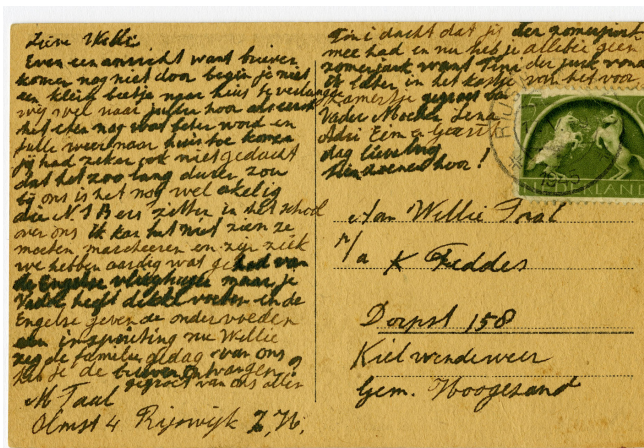 Lieve Willi
Even een ansicht want brieven
komen nog niet door begin je niet
een klein beetje naar huis te verlangen
wij wel naar jullie hoor als eerst
het eten nog wat beter word en
jullie weer naar huis toe komen
jij had zeker ook niet gedacht
dat het zoo lang duren zou
bij ons is het nog wel akelig
die N S Bers zitten in het school
over ons ik kan het niet zien ze
moeten marcheeren en zijn ziek
we hebben aardig wat gehad van
de Engelse vliegtuige maar je
Vader heeft dikke voeten en de
Engelse geven de ondervoeden
een inspuiting nu Willie
zeg de familie gedag van ons
heb je de brieven ontvangen?
gegroet van ons allen
M Taal
Olmst 4 Rijswijk Z,H,
Tini dacht dat jij der zomerjurk
mee had en nu heb je allebei geen
zomerjurk want Tini der jurk vond
ik later in het kastje van het voor
kamertje gegroet
Vader Moeder Lena
Adri Wim
dag lieveling
hoor!
Aan Willie
p/a K Feddes
Dorpst 158
Kielwendeweer
Gem. Hoogezand
NEDERLAND